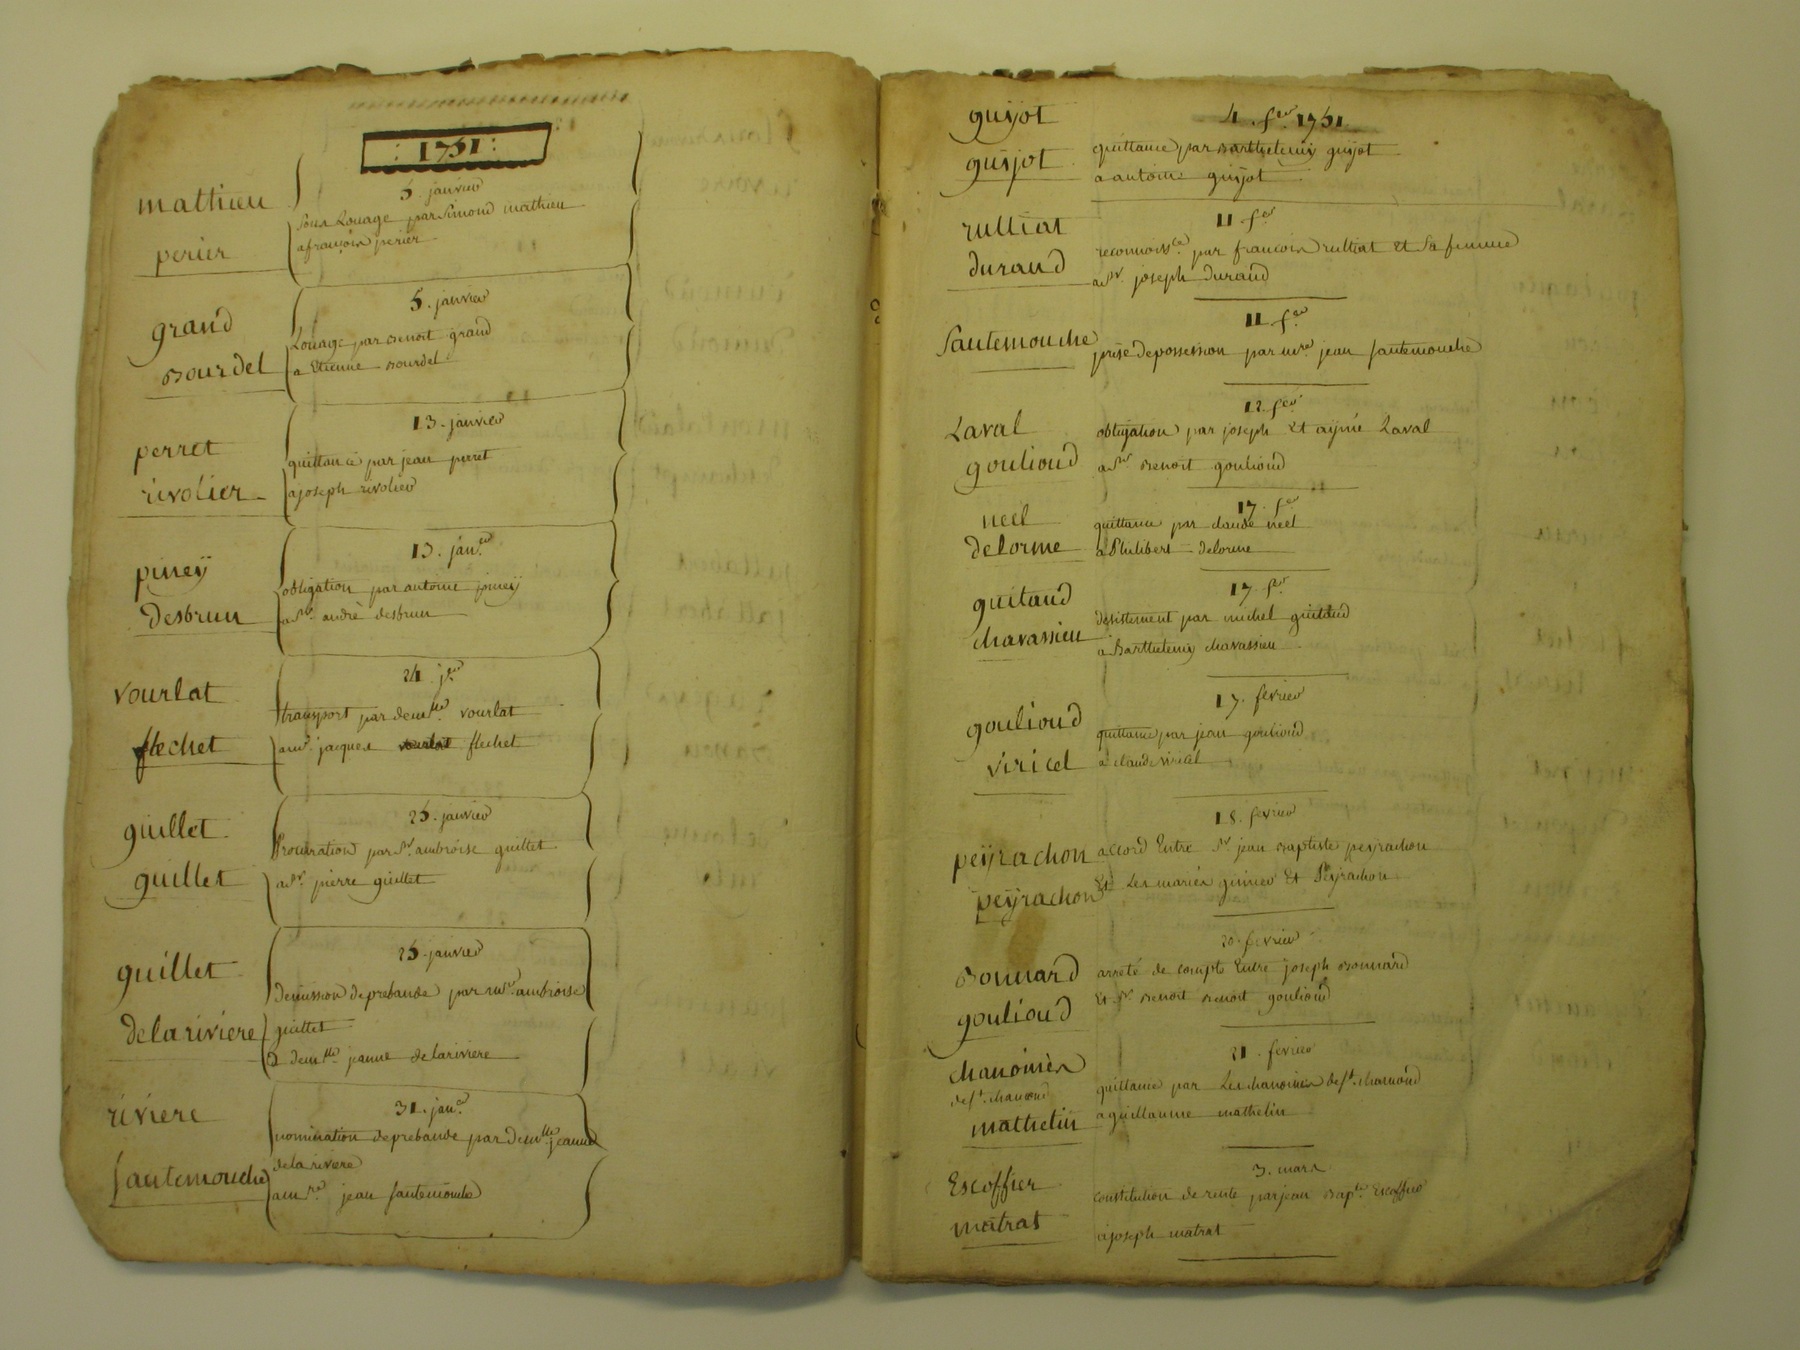 : 1751 :
mathieu
5. janvier
sous Louage par Simond mathieu
perier
a françois perier
grand
5. janvier
Louage par Benoit grand
Bourdel
a Etienne Bourdel
perret
13. janvier
quittance par jean perret
rivolier
a joseph rivolier
piney
13. janer
obligation par antoine piney
Desbrun
a Sr. andré desbrun
vourlat
24. jer
transport par demlle. vourlat
flechet
a mr. jacques flechet
guillet
25. janvier
Procuration par Sr. ambroise guillet
guillet
a Sr. pierre guillet
guillet
25. janvier
Demission de prebande par mre. ambroise
delariviere
guillet
a demlle. jeanne delariviere
riviere
31. janer
nomination de prebande par Demlle. jeanne
delariviere
Sautemouche
a mre. jean Sautemouche
guijot
4. fer. 1751
guijot
quittance par Barthelemy guijot
a antoine guijot
rulliat
11. fer
reconnoisce. par francois rulliat et Sa femme
durand
a Sr. joseph Durand
11. fer
Sautemouche
prise de possession par mre. jean Sautemouche
12. fer
Laval
obligation par joseph Et aymé Laval
goulioud
a Sr Benoit goulioud
17. fer
neel
quittance par claude neel
delorme
a Philibert delorme
17. fer
guitaud
desistement par michel guitaud
chavassieu
a Barthelemy chavassieu
17. fevrier
goulioud
quittance par jean goulioud
viricel
a claude viricel
18. fevrier
peyrachon
accord Entre Sr. jean Baptiste peyrachon
peyrachon
Et Les mariés ginier Et Peyrachon
20. fevrier
Bonnard
arreté de compte Entre joseph Bonnard
goulioud
Et Sr. Benoit Benoit goulioud
21. fevrier
chanoines
de St. chamond
quittance par Les chanoines de St. chamond
mathelin
a guillaume mathelin
3. mars
Escoffier
constitution de rente par jean Bapte. Escoffier
matrat
a joseph matrat